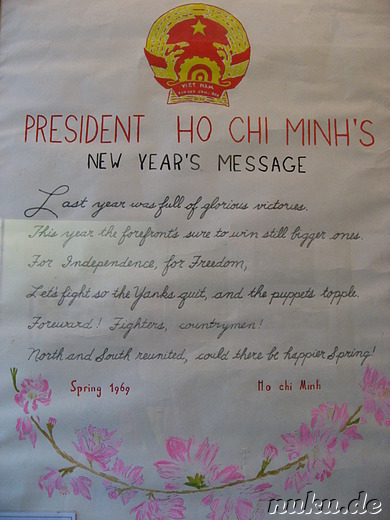 VIET NAM
PRESIDENT HO CHI MINH'S
NEW YEAR'S MESSAGE
Last year was full of glorious victories.
This year the forefront's sure to win still bigger ones.
For Independence, for Freedom,
Let's fight so the Yanks quit, and the puppets topple.
Foreward! Fighters, countrymen!
North and South reunited, could there be happier Spring!
Spring 1969
Ho chi Minh
nuku.de